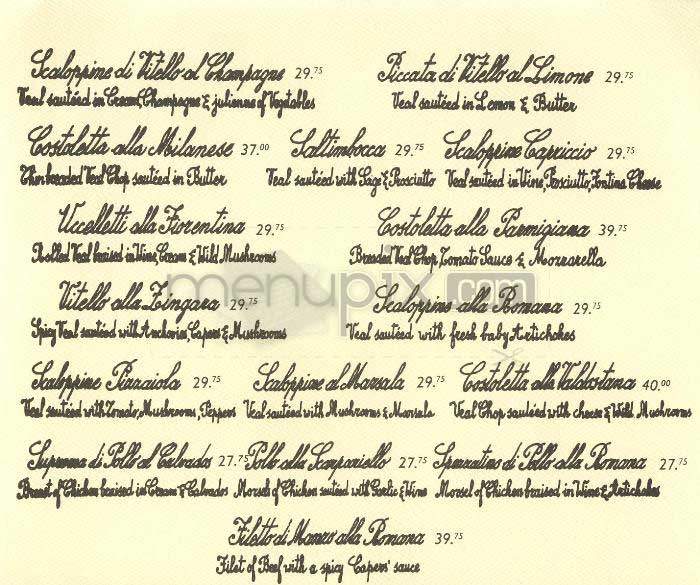 Scaloppine di Vitello al Champagne 29.75 Piccata di Vitello al Limone 29.75
Veal sautéed in Cream, Champagne & julienne of Vegetables Veal sautéed in Lemon & Butter
Costoletta alla Milanese 37.00 Saltimbocca 29.75 Scaloppine Capriccio 29.75
Thin breaded Veal Chop sautéed in Butter Veal sautéed with Sage & Prosciutto Veal sautéed in Wine, Prosciutto, Fontina Cheese
Uccelletti alla Fiorentina 29.75 Costoletta alla Parmigiana 39.75
Rolled Veal braised in Wine, Cream & Wild Mushrooms Breaded Veal Chop, Tomato Sauce & Mozzarella
menupix.com
Vitello alla Zingara 29.75 Scaloppine alla Romana 29.75
Spicy Veal sautéed with Anchovies, Capers & Mushrooms Veal sautéed with fresh baby Artichokes
Scaloppine Pizzaiola 29.75 Scaloppine al Marsala 29.75 Costoletta alla Valdostana 40.00
Veal sautéed with Tomato, Mushrooms, Peppers Veal sautéed with Mushrooms & Marsala Veal Chop sautéed with cheese & Wild Mushrooms
Suprema di Pollo al Calvados 27.75 Pollo alla Scarpariello 27.75 Spezzatino di Pollo alla Romana 27.75
Breast of Chicken braised in Cream & Calvados Morsel of Chicken sautéed with Garlic & Wine Morsel of Chicken braised in Wine & Artichokes
Filetto di Manzo alla Romana 39.75
Filet of Beef with a spicy Capers' sauce